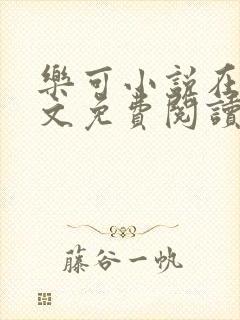 樂可小說在
文免費閱讀
藤谷一帆